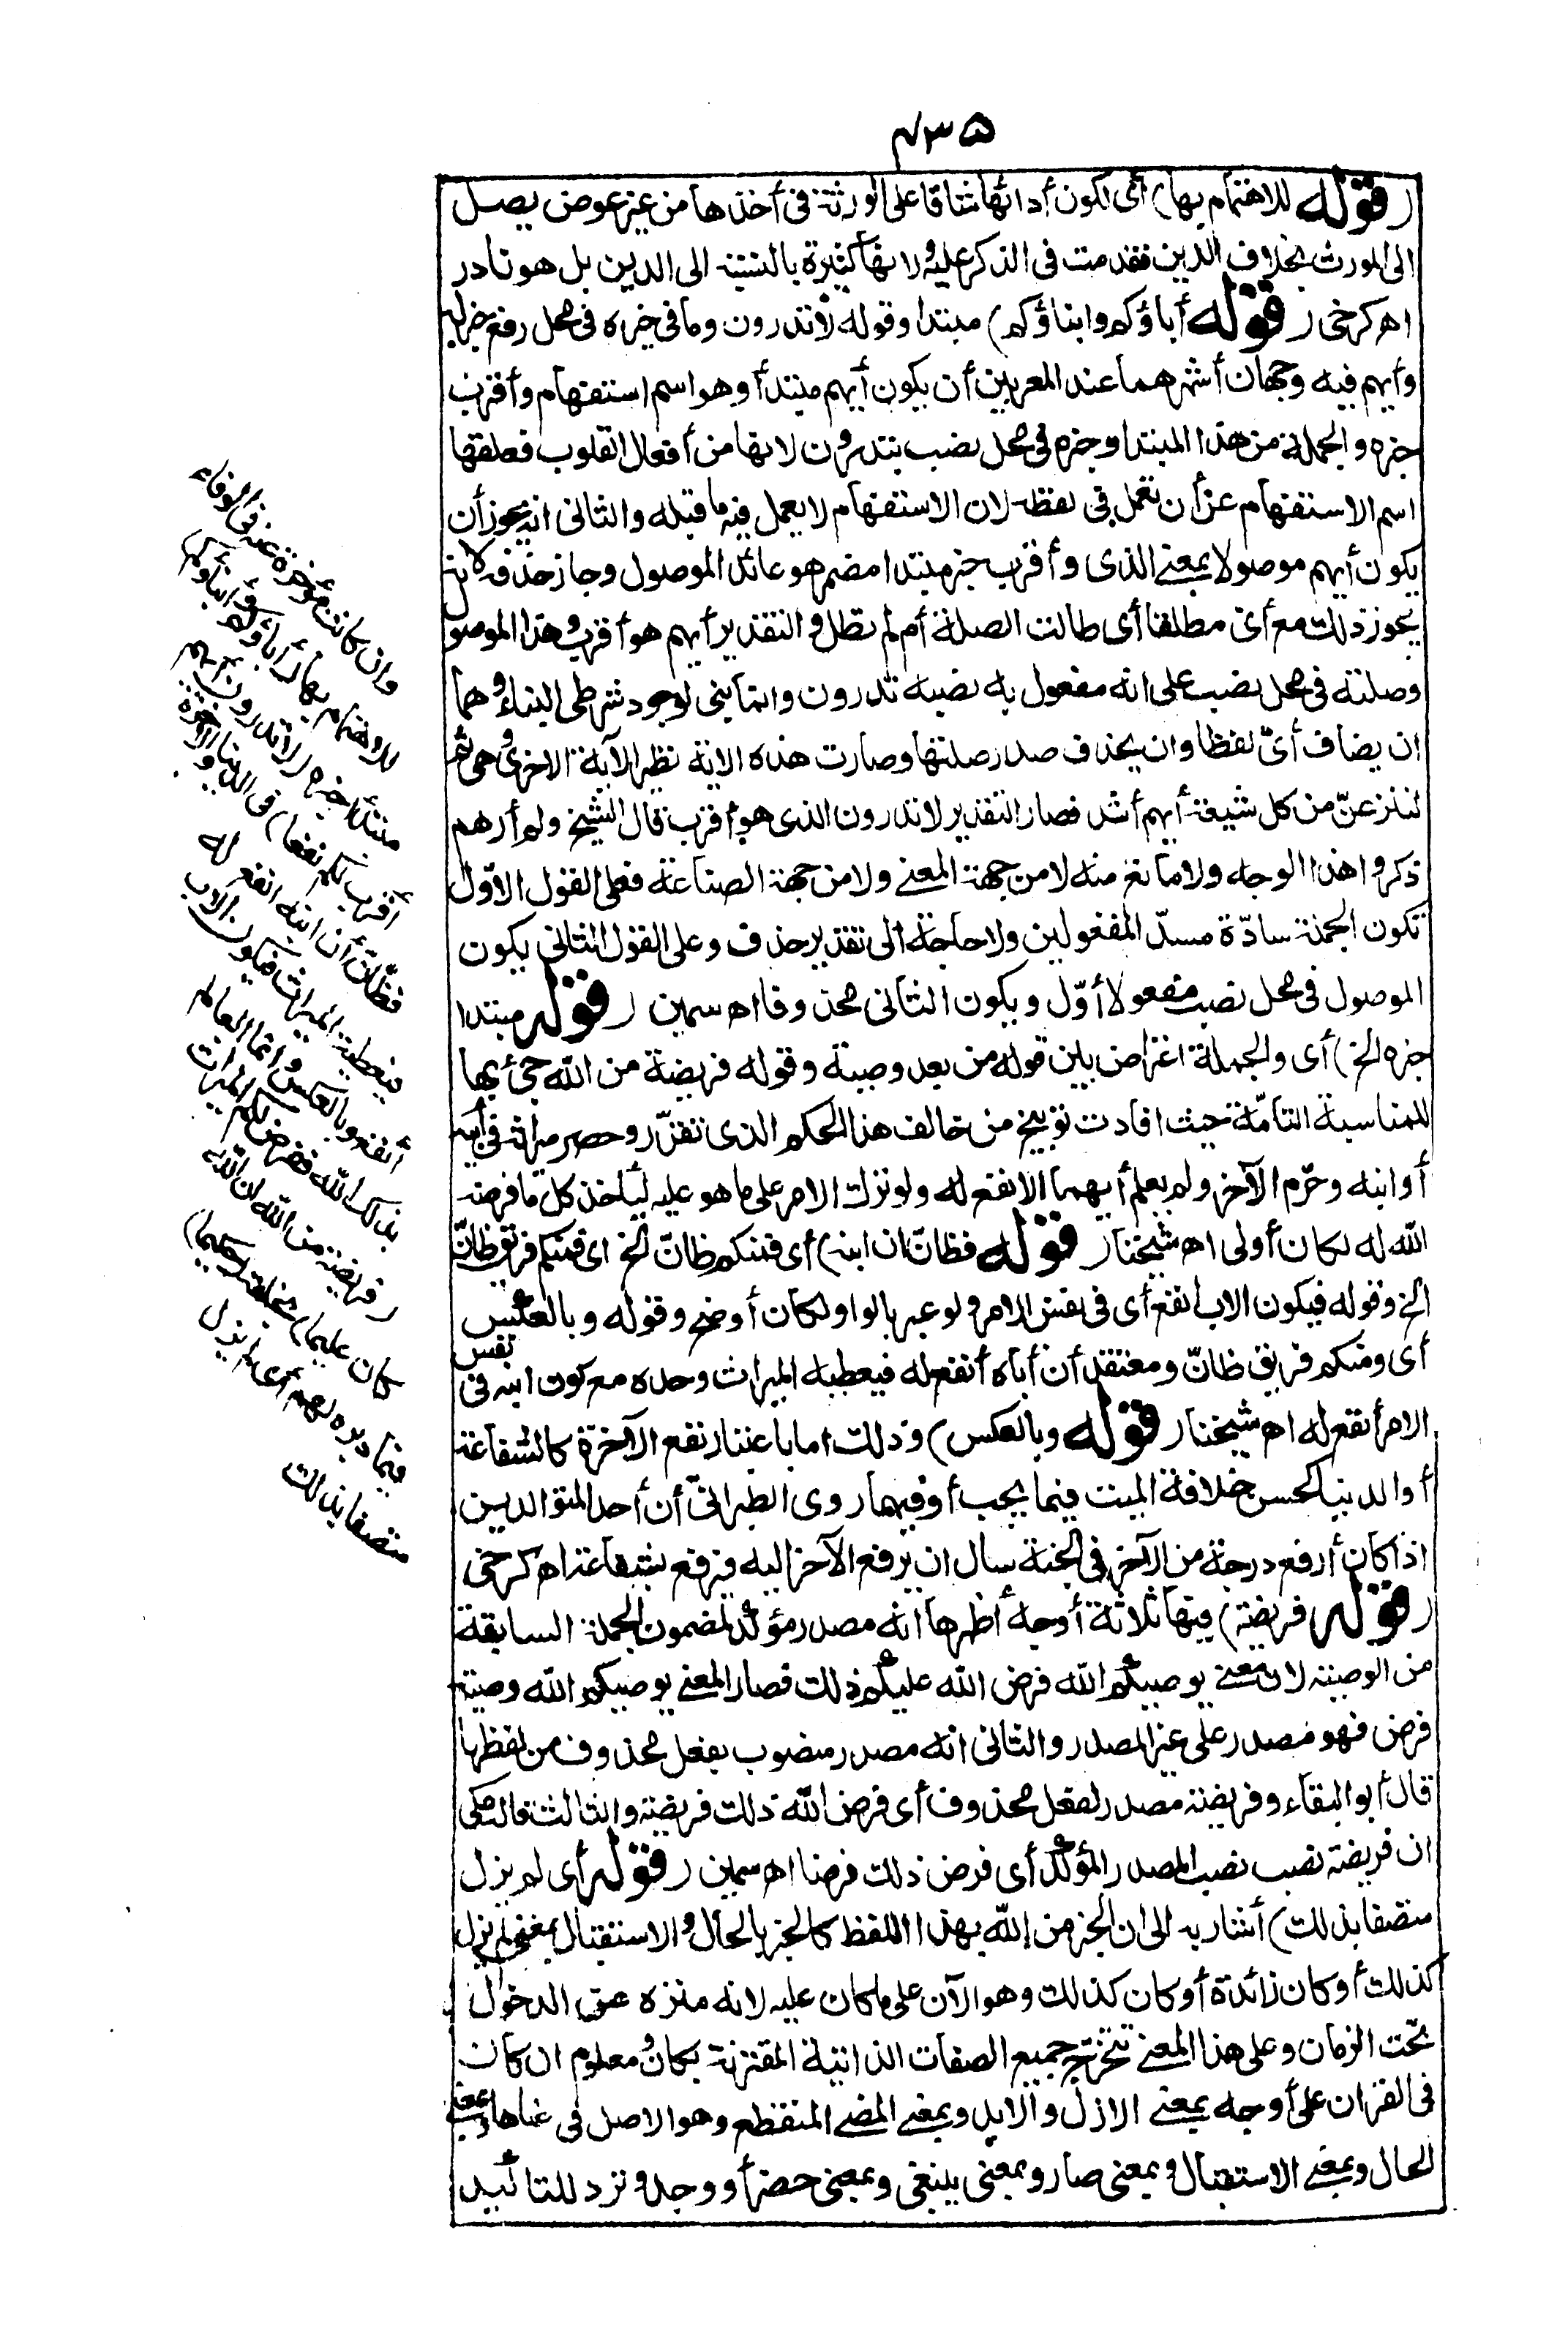 ٤٣٥
(قوله للاهتمام بها) أى لكون أدائها شاقا على الورثة فى أخذها من غير عوض يصل
الى المورث بخلاف الدين فقدمت فى الذكر عليه ولانها كثيرة بالنسبة الى الدين بل هو نادر
اه كرخى (قوله أباؤكم وابناؤكم) مبتدا وقوله لا تدرون وما فى خبره فى محل رفع خبر له
وأيهم فيه وجهان أشهرهما عند المعربين أن يكون أيهم مبتدأ وهو اسم استفهام وأقرب
خبره والجملة من هذا المبتدا وخبره فى محل نصب بتدرون لانها من أفعال القلوب فعلقها
اسم الاستفهام عن أن تعمل فى لفظه لان الاستفهام لا يعمل فيه ما قبله والثانى انه يجوز أن
يكون أيهم موصولا بمعنى الذى وأقرب خبر مبتدا مضمر هو عائد الموصول وجاز حذفه لانه
يجوز ذلك مع أى مطلقا أى طالت الصلة أم لم تطل والتقدير أيهم هو أقرب وهذا الموصول
وصلته فى محل نصب على انه مفعول به نصبه تدرون وانما بنى لوجود شرطى البناء وهما
ان يضاف أىّ لفظا وان يحذف صدر صلتها وصارت هذه الاية نظير الآية الاخرى وهى ثم
لننزعنّ من كل شيعة أيهم أشد فصار التقدير لا تدرون الذى هو أقرب قال الشيخ ولم أرهم
ذكروا هذا الوجه ولا مانع منه لا من جهة المعنى ولا من جهة الصناعة فعلى القول الاوّل
تكون الجملة سادّة مسدّ المفعولين ولا حاجة الى تقدير حذف وعلى القول الثانى يكون
الموصول فى محل نصب مفعولا أوّل ويكون الثانى محذوفا اه سمين (قوله مبتدا
خبره الخ) أى والجملة اعتراض بين قوله من بعد وصية وقوله فريضة من الله جئ بها
للمناسبة التامّة حيث افادت توبيخ من خالف هذا الحكم الذى تقرّر وحصر ميراثه فى أبيه
أو ابنه وحرّم الآخر ولم يعلم أيهما الانفع له ولو نزل الامر على ما هو عليه ليأخذ كل ما فرضه
الله له لكان أولى اه شيخنا (قوله فظانّ ان ابنه) أى فمنكم ظانّ الخ اى فمنكم فريق ظانّ
الخ وقوله فيكون الاب انفع أى فى نفس الامر ولو عبر بالواو لكان أوضح وقوله وبالعكس
أى ومنكم فريق ظانّ ومعتقد أن أباه أنفع له فيعطيه الميراث وحده مع كون ابنه فى نفس
الامر أنفع له اه شيخنا (قوله وبالعكس) وذلك اما باعتبار نفع الآخرة كالشفاعة
أو الدنيا كحسن خلافة الميت فيما يجب أو فيهما روى الطبرانىّ أن أحد المتوالدين
اذا كان أرفع درجة من الآخر فى الجنة سال ان يرفع الآخر اليه فيرفع بشفاعته اه كرخى
(قوله فريضة) فيها ثلاثة أوجه أظهرها انه مصدر مؤكد لمضمون الجملة السابقة
من الوصية لان معنى يوصيكم الله فرض الله عليكم ذلك فصار المعنى يوصيكم الله وصية
فرض فهو مصدر على غير المصدر والثانى انه مصدر منصوب بفعل محذوف من لفظها
قال أبو البقاء وفريضة مصدر لفعل محذوف أى فرض الله ذلك فريضة والثالث قاله مكى
ان فريضة نصب نصب المصدر المؤكد أى فرض ذلك فرضا اه سمين (قوله أى لم يزل
متصفا بذلك) أشار به الى ان الخبر من الله بهذا اللفظ كالخبر بالحال والاستقبال بمعنى لم يزل
كذلك أو كان زائدة أو كان كذلك وهو الآن على ما كان عليه لانه منزه عن الدخول
تحت الزمان وعلى هذا المعنى تتخرّج جميع الصفات الذاتية المقترنة بكان ومعلوم ان كان
فى القران على أوجه بمعنى الازل والابد وبمعنى المضى المنقطع وهو الاصل فى معناها وبمعنى
الحال وبمعنى الاستقبال وبمعنى صار وبمعنى ينبغى وبمعنى حضر أو وجد وترد للتاكيد
وان كانت مؤخرة عنه فى الوفاء
للاهتمام بها (أباؤكم وابناؤكم)
مبتدأ خبره (لا تدرون أيهم
أقرب لكم نفعا) فى الدنيا والآخرة
فظانّ أن ابنه انفع له
فيعطيه الميراث فيكون الاب
أنفع وبالعكس وانما العالم
بذلك الله ففرض لكم الميراث
(فريضة من الله ان الله
كان عليما) بخلقه (حكيما)
فيما دبره لهم أى لم يزل
متصفا بذلك